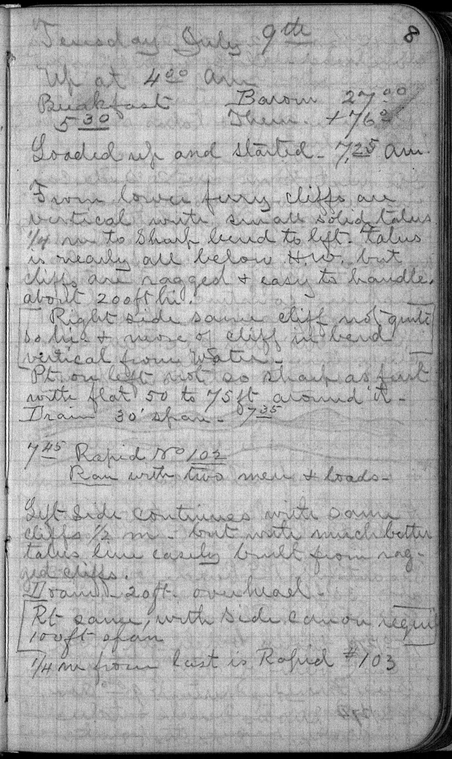 8
Tuesday July 9th
Up at 4 00 am
Breakfast Barom 27 00
5 30 Therm. +76°
Loaded up and started - 7,25 am.
From lower ferry cliffs are
vertical with small solid talus
1/4 m to sharp bend to left. talus
is nearly all below H.W. but
cliffs are ragged & easy to handle.
about 200 ft hi.
[Right side same cliff not quite
so hi & more of cliff in bend
vertical from Water -]
Pt. on left not so sharp as first
with flat 50 to 75 ft around it -
Drain 30' span - 7 35
7 45 Rapid No 102
Ran with two men & loads -
Left side continues with same
cliffs 1/2 m - but with much better
talus line easily built from rag-
ged cliffs.
Drain 20 ft. overhead -
[Rt same, with side canon
100 ft span
1/4 m from last is Rapid #103